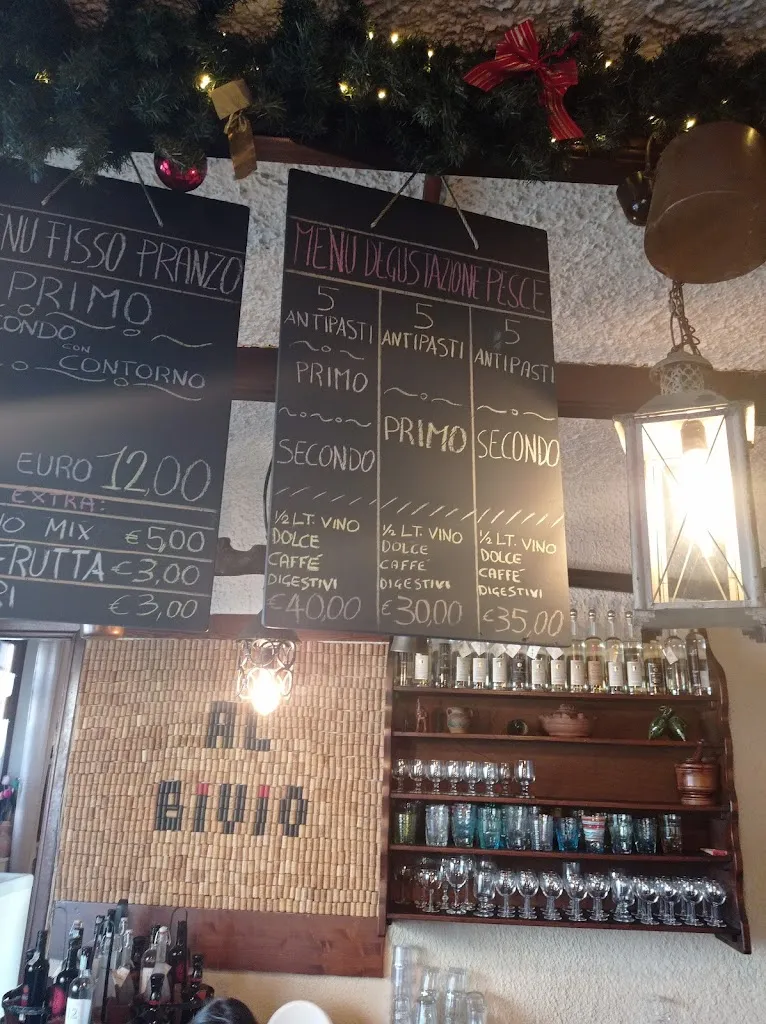 FISSO PRANZO
PRIMO
CON
CONTORNO
EURO 12,00
EXTRA:
MIX €5,00
FRUTTA €3,00
€3,00
MENU DEGUSTAZIONE PESCE
5
ANTIPASTI
PRIMO
SECONDO
½ LT. VINO
DOLCE
CAFFÉ
DIGESTIVI
€40,00
5
ANTIPASTI
PRIMO
½ LT. VINO
DOLCE
CAFFÉ
DIGESTIVI
€30,00
5
ANTIPASTI
SECONDO
½ LT. VINO
DOLCE
CAFFÉ
DIGESTIVI
€35,00
AL
BIVIO